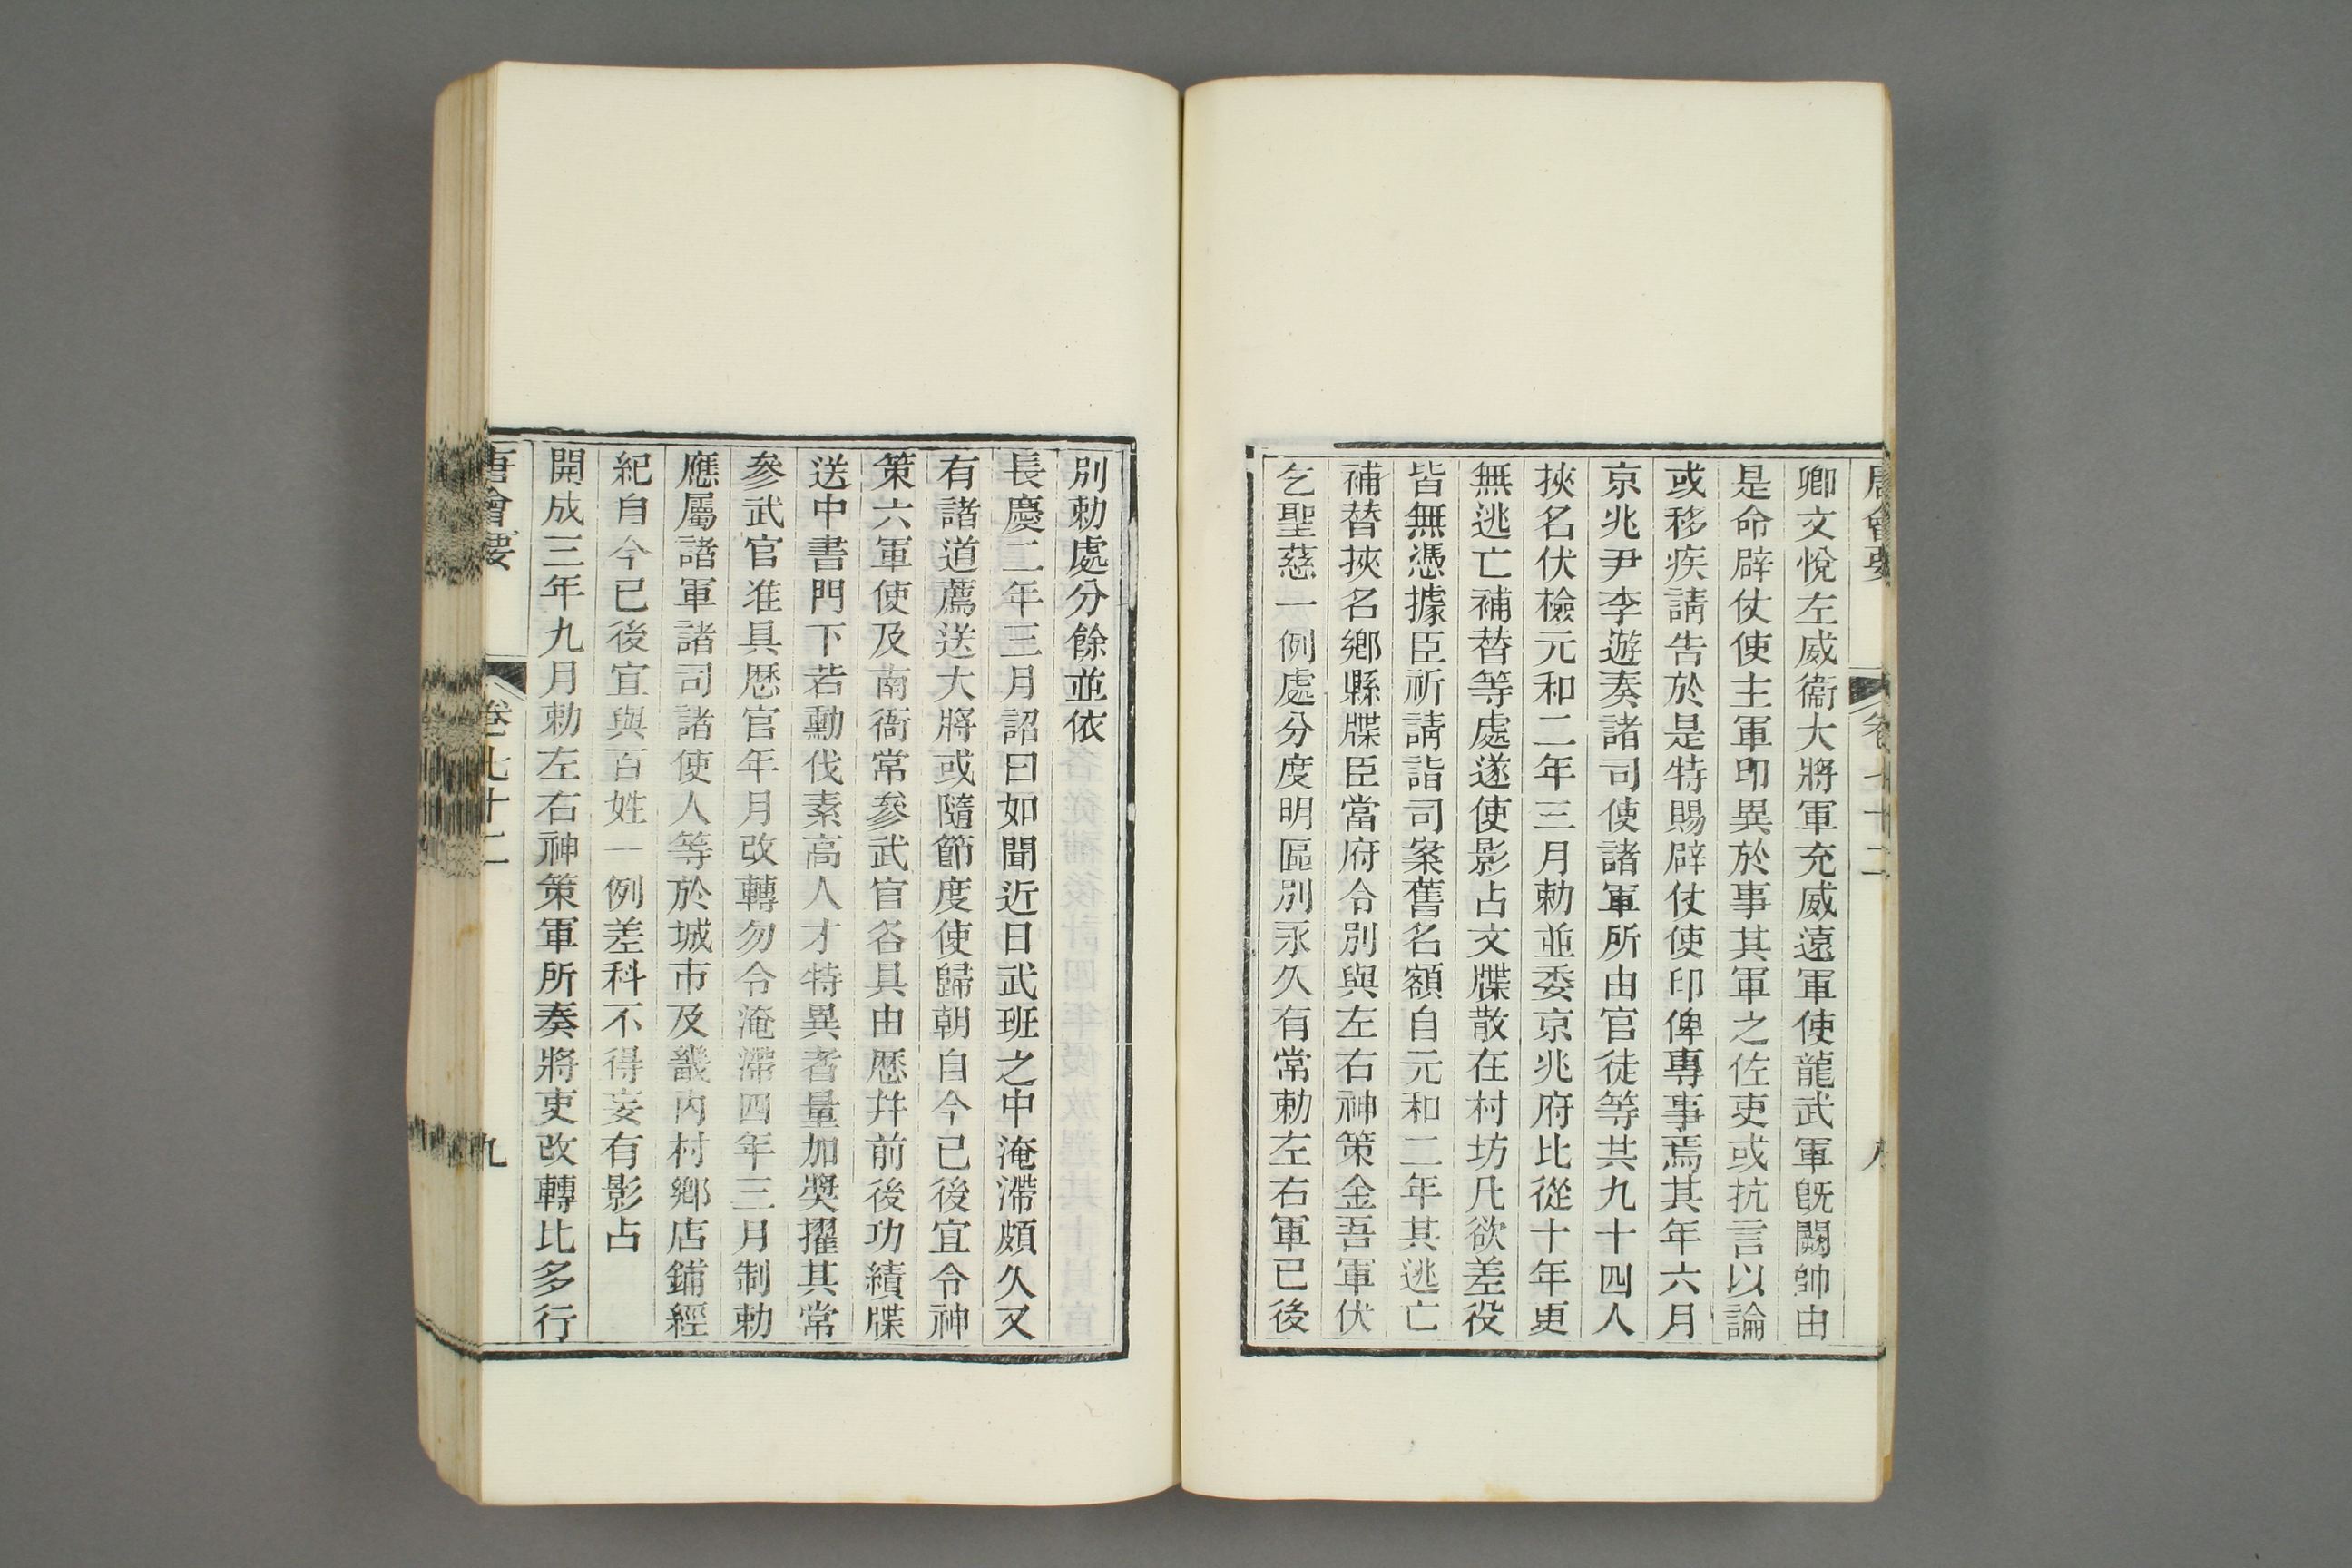 唐會要 卷七十二
卿文悅左威衞大將軍充威遠軍使龍武軍旣闕帥由
是命辟仗使主軍印異於事其軍之佐吏或抗言以論
或移疾請告於是特賜辟仗使印俾專事焉其年六月
京兆尹李遊奏諸司使諸軍所由官徒等共九十四人
挾名伏檢元和二年三月勅並委京兆府比從十年更
無逃亡補替等處遂使影占文牒散在村坊凡欲差役
皆無憑據臣祈請詣司案舊名額自元和二年其逃亡
補替挾名鄉縣牒臣當府令別與左右神策金吾軍伏
乞聖慈一例處分度明區別永久有常勅左右軍已後
別勅處分餘並依
長慶二年三月詔曰如聞近日武班之中淹滯頗久又
有諸道薦送大將或隨節度使歸朝自今已後宜令神
策六軍使及南衙常參武官各具由歷并前後功績牒
送中書門下若勳伐素高人才特異者量加獎擢其常
參武官准具歷官年月改轉勿令淹滯四年三月制勅
應屬諸軍諸司諸使人等於城市及畿內村鄉店鋪經
紀自今已後宜與百姓一例差科不得妄有影占
開成三年九月勅左右神策軍所奏將吏改轉比多行
唐會要 卷七十二 九